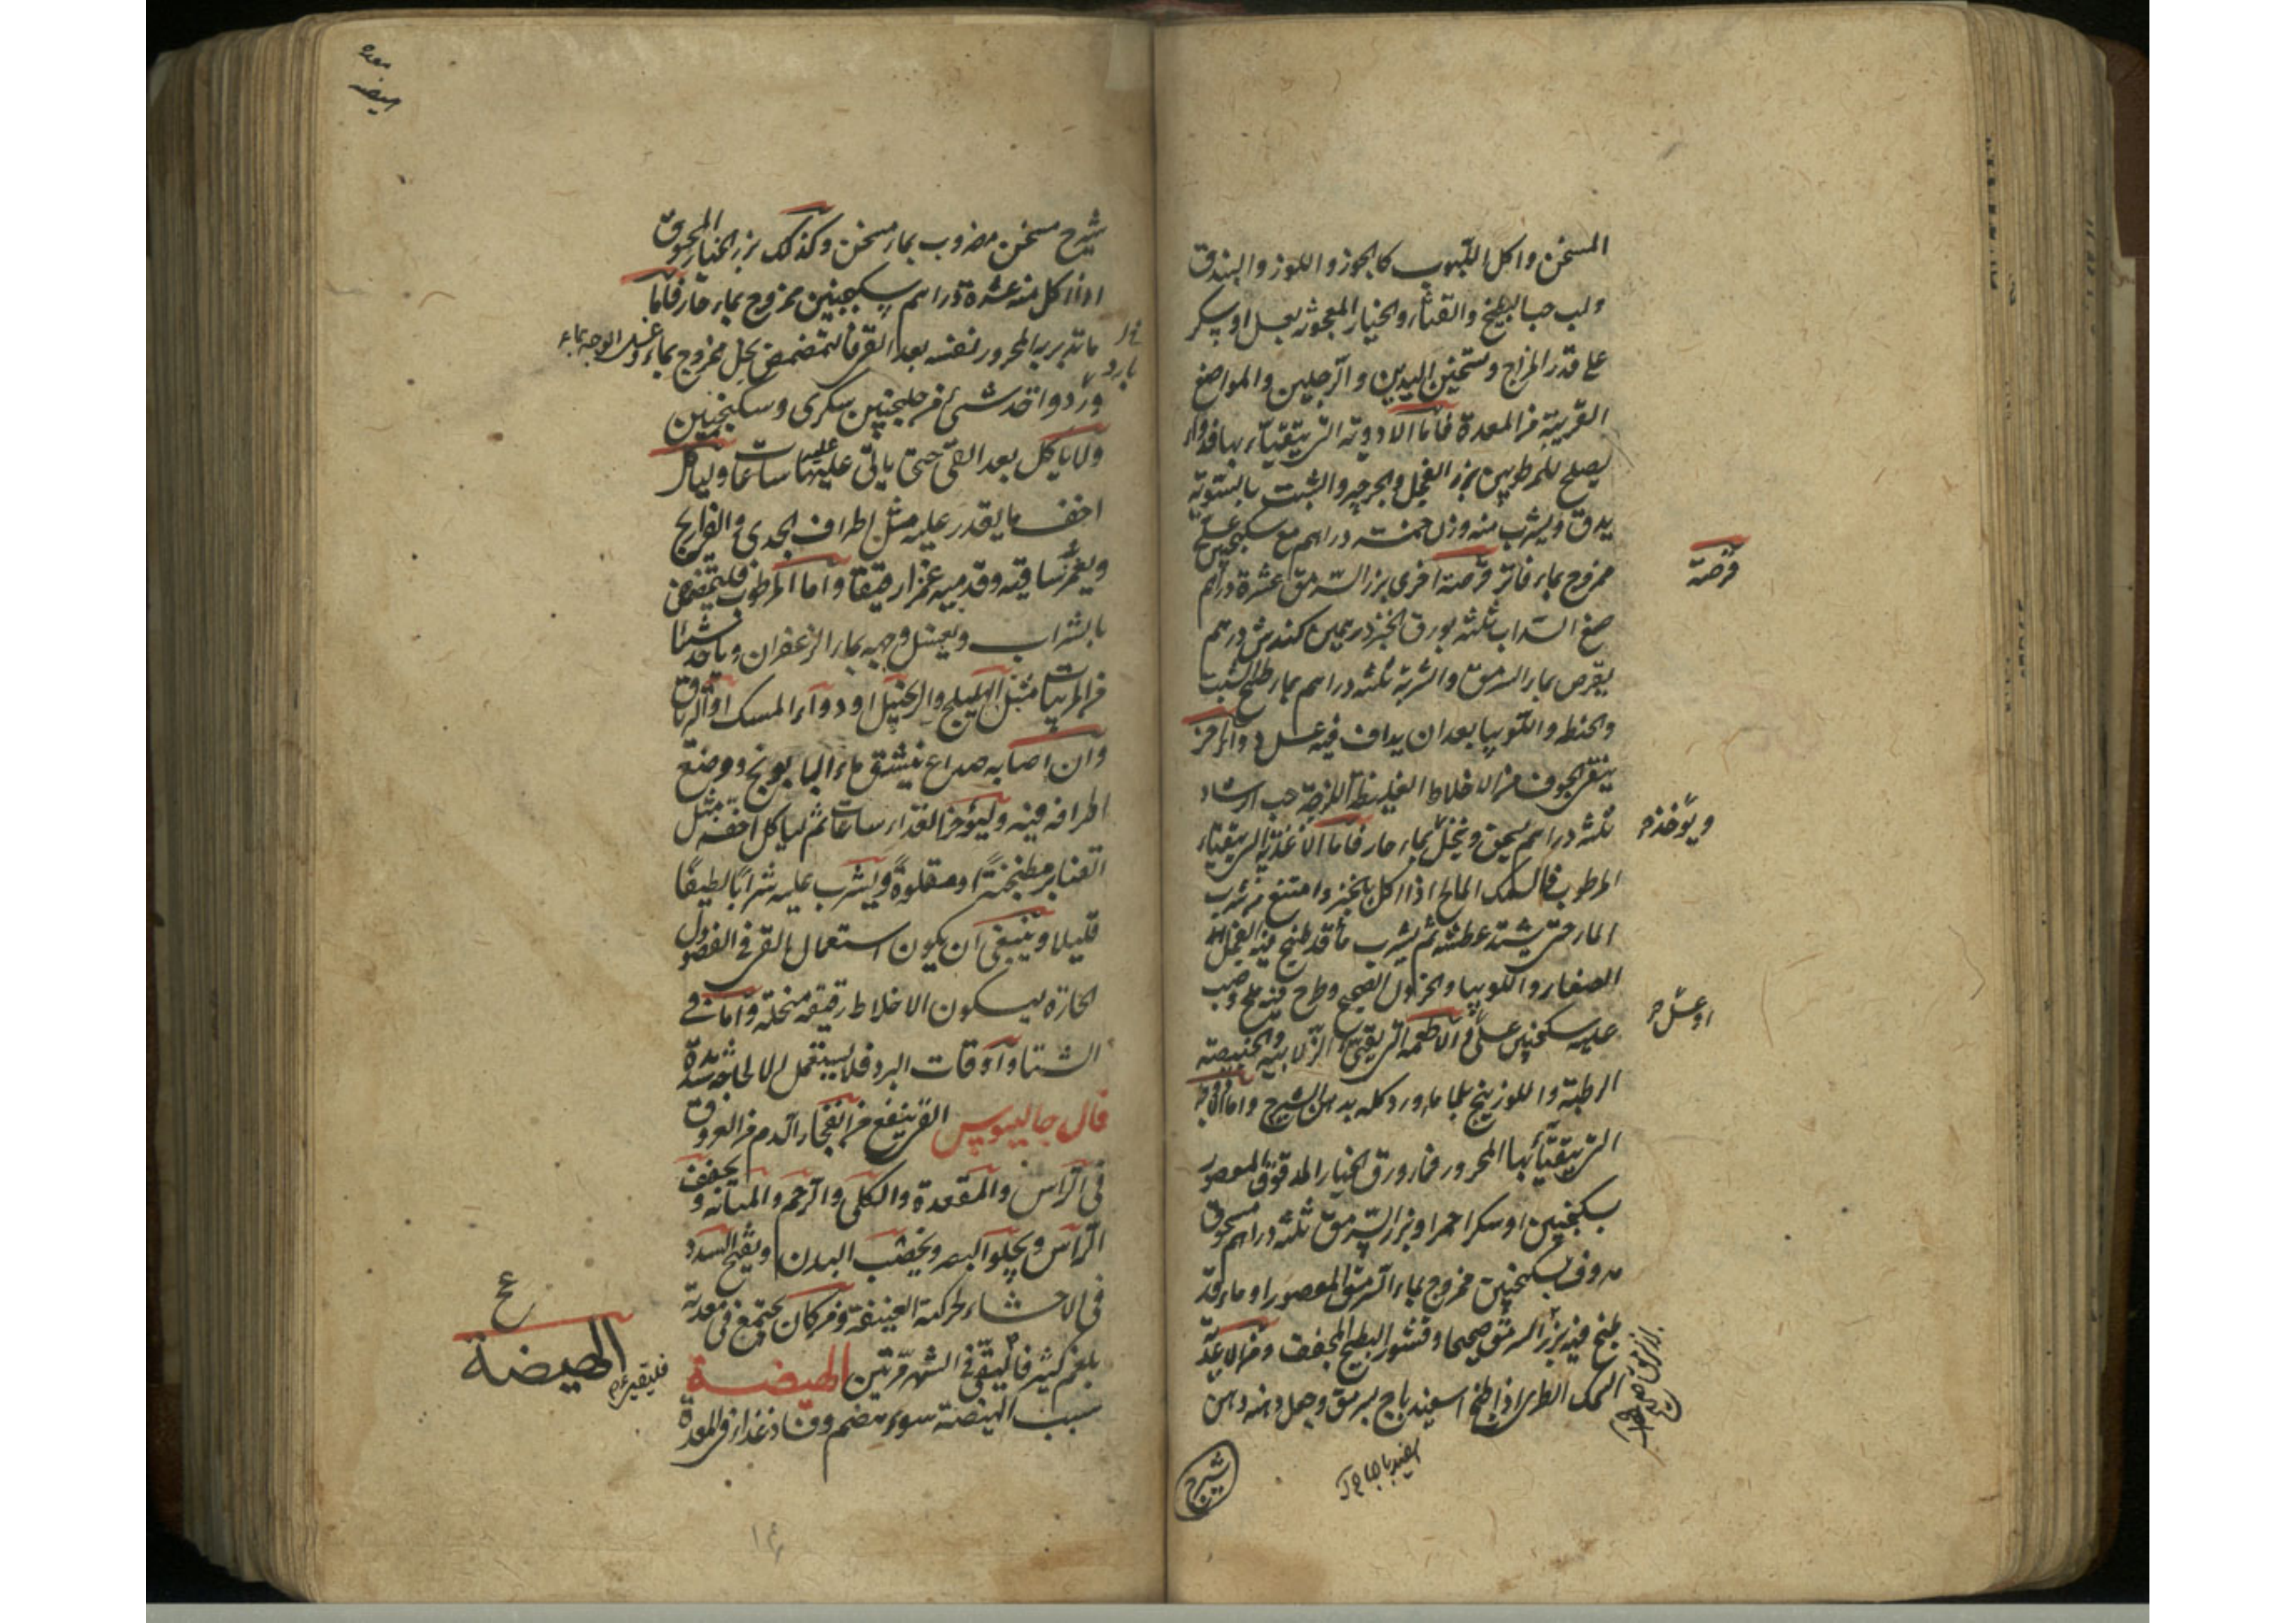 المسخن واكل اللبوب كالجوز واللوز والبندق
ولب حب البطيخ والقثاء والخيار المعجون بعسل او سكر
على قدر المزاج وتسخين اليدين والرجلين والمواضع
القريبة من المعدة فاما الادوية التي يتقيأ بها
يصلح للمرطوبين بزر الفجل والجرجير والشبت بالسوية
يدق ويشرب منه وزن خمسة دراهم مع سكنجبين عسلي
ممزوج بماء فاتر قرصة اخرى بزر السرمق عشرة دراهم
السداب ثلثة بورق الخبز درهمين كندش درهم
يقرص بماء السرمق والشربة ثلثة دراهم بماء طبيخ الشبت
واللوبيا بعد ان يداف فيه عسل
ينقي الجوف من الاخلاط الغليظة اللزجة حب الرشاد
ثلثة دراهم يسحق وينخل بماء حار فاما الاغذية التي يتقيأ
المرطوب فالسمك المالح اذا اكل بالخبز وامتنع من شرب
الماء حتى يشتد عطشه ثم يشرب ماء قد طبخ فيه الفجل
الصغار واللوبيا والخردل الصحيح وطرح فيه ملح وصب
عليه سكنجبين عسلي والاطعمة التي يقيئ الزلابية والخبيصة
الرطبة واللوزينج بلا ماء ورد كله بدهن الشيرج واما
التي يتقيأ بها المحرور فماء ورق الخيار المدقوق المعصور
بسكنجبين او سكر احمر او بزر السرمق ثلثة دراهم مسحوق
مدوف بسكنجبين ممزوج بماء السرمق المعصور او ماء قد
طبخ فيه بزر السرمق صحيحا وقشور البطيخ المجفف ومن الاغذية
السمك الطري اذا طبخ اسفيذباج بسرمق وجعل دهنه دهن
شيرج
قرصة
ويؤخذ
او عسل
شيرج مسخن مضروب بماء مسخن وكذلك بزر الخيار المسحوق
اذا اكل منه عشرة دراهم بسكنجبين ممزوج بماء حار فاما
ما تدبر به المحرور نفسه بعد القئ فالتمضمض بخل ممزوج بماء وغسل الوجه بماء
بارد
ورد واخذ شئ من جلنجبين سكري وسكنجبين
ولا ياكل بعد القئ حتى ياتي عليه ساعات وليأكل
اخف ما يقدر عليه مثل اطراف الجدي والفراريج
ويغمز ساقيه وقدميه غمزا رقيقا واما المرطوب فليتمضمض
بالشراب ويغسل وجهه بماء الزعفران وياخذ شيئا
من المربيات مثل الهليلج والزنجبيل او دواء المسك او الترياق
وان اصابه صداع ينشق ماء البابونج ووضع
اطرافه فيه وليؤخر الغداء ساعات ثم لياكل اخفه مثل
القنابر مطجنة او مقلوة ويشرب عليه شرابا لطيفا
قليلا وينبغي ان يكون استعمال القئ في الفصول
الحارة ليكون الاخلاط رقيقة منحلة واما في
الشتا واوقات البرد فلا يستعمل الا لحاجة شديدة
قال جالينوس القئ ينفع من انفجار الدم من العروق
في الراس والمقعدة والكلى والرحم والمثانة ويجفف
الراس ويجلو البصر ويخصب البدن ويفتح السدد
في الاحشاء لحركته العنيفة ومن كان يجتمع في معدته
بلغم كثير فاليتقئ في الشهر مرتين الهيضة
سبب الهيضة سوء هضم وفساد غذاء في المعدة
الهيضة
معده
هيضه